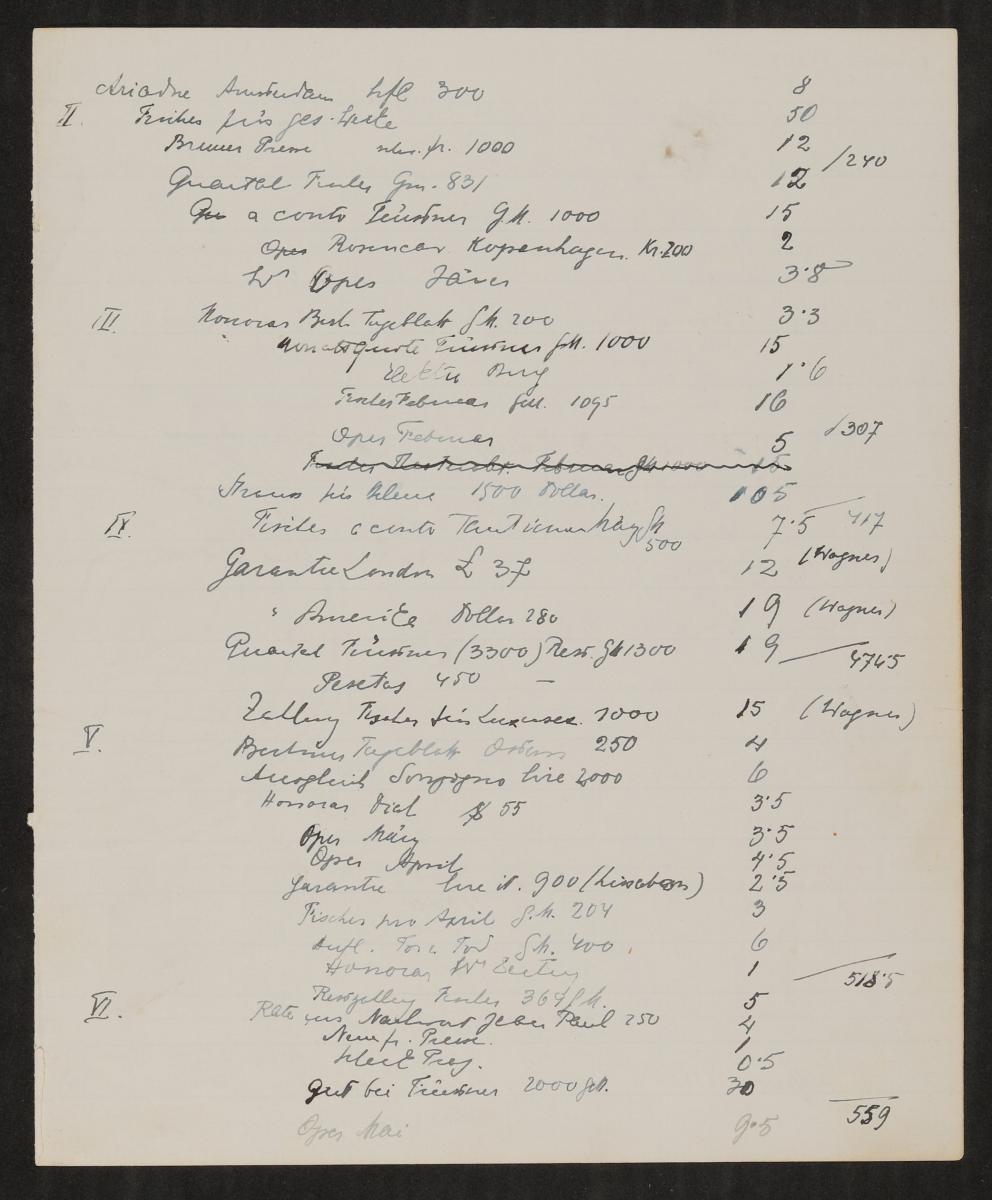 Ariadne Amsterdam hfl 300 8
II. Fischer für ges. Werke 50
Bremer Presse schw. fr. 1000 12
/240
Quartal Fischer Gm. 831 12
a conto Fürstner G.M. 1000 15
Rosencav. Kopenhagen. Kr. 200 2
Wr Oper Jäner 3·8
III. Honorar Berl. Tageblatt GM. 200 3·3
Monatsquote Fürstner GM. 1000 15
Elektra Burg 1·6
Fischer Februar GM. 1095 16
Oper Februar 5 /307
Strauss für Helena 1500 Dollar. 105
IV. Fischer a conto Tantiemen März GM 500 7·5 417
Garantie London £ 37 12 (Wagner)
" America Dollar 280 19 (Wagner)
Quartal Fürstner (3300) Rest. GM 1300 19 474·5
Pesetas 450 —
Zahlung Fischer für 1000 15 (Wagner)
V. Berliner Tageblatt Ostern 250 4
Ausgleich Sonzogno Lire 2000 6
Honorar Dial $ 55 3·5
Oper März 3·5
Oper April 4·5
Garantie Lire it. 900 (Lissabon) 2·5
Fischer pro April G.M. 204 3
Aufl. Tor u. Tod GM. 400 6
Honorar Wr Zeitung 1
518·5
VI. Restzahlung Fischer 364 GM. 5
Rate aus Nachwort Jean Paul 250 4
Neue fr. Presse. 1
Prag. 0·5
Gut bei Fürstner 2000 GM. 30
559
Oper Mai 9·5